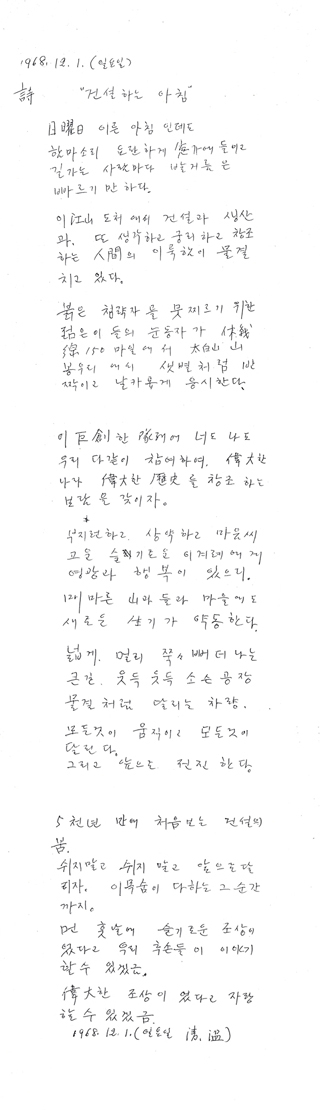 1968. 12. 1. (일요일)
詩 "건설하는 아침"
日曜日 이른 아침 인데도
함마소리 요란하게 귓가에 들리고
길가는 사람마다 발거름은
빠르기만 하다.
이 江山 도처에서 건설과 생산
과. 또 생각하고 궁리하고 창조
하는 人間의 이룩함이 물결
치고 있다.
붉은 침략자를 무찌르기 위한
젊은이들의 눈동자가 休戰
線 150마일에서 太白山
봉우리에서 샛별처럼 반
짝이고 날카롭게 응시한다.
이 巨創한 隊列에 너도 나도
우리 다같이 참여하여, 偉大한
나라 偉大한 歷史를 창조하는
보람을 갖이자.
부지런하고. 상냥하고 마음씨
고운 슬기로운 이 겨레에게
영광과 행복이 있으리.
메마른 山과 들과 마을에도
새로운 생기가 약동한다.
넓게. 멀리 쭉쭉 뻐더나는
큰길. 웃득 웃득 소슨 공장
물결처럼 달리는 차량.
모든것이 움직이고 모든것이
달린다.
그리고 앞으로 전진 한다.
5천년 만에 처음보는 건설의
봄.
쉬지말고 쉬지 말고 앞으로 달
리자. 이 목숨이 다하는 그 순간
까지.
먼 훗날에 슬기로운 조상이
었다고 우리 후손들이 이야기
할 수 있겠금.
偉大한 조상이었다고 자랑
할 수 있겠금.
1968. 12. 1. (일요일